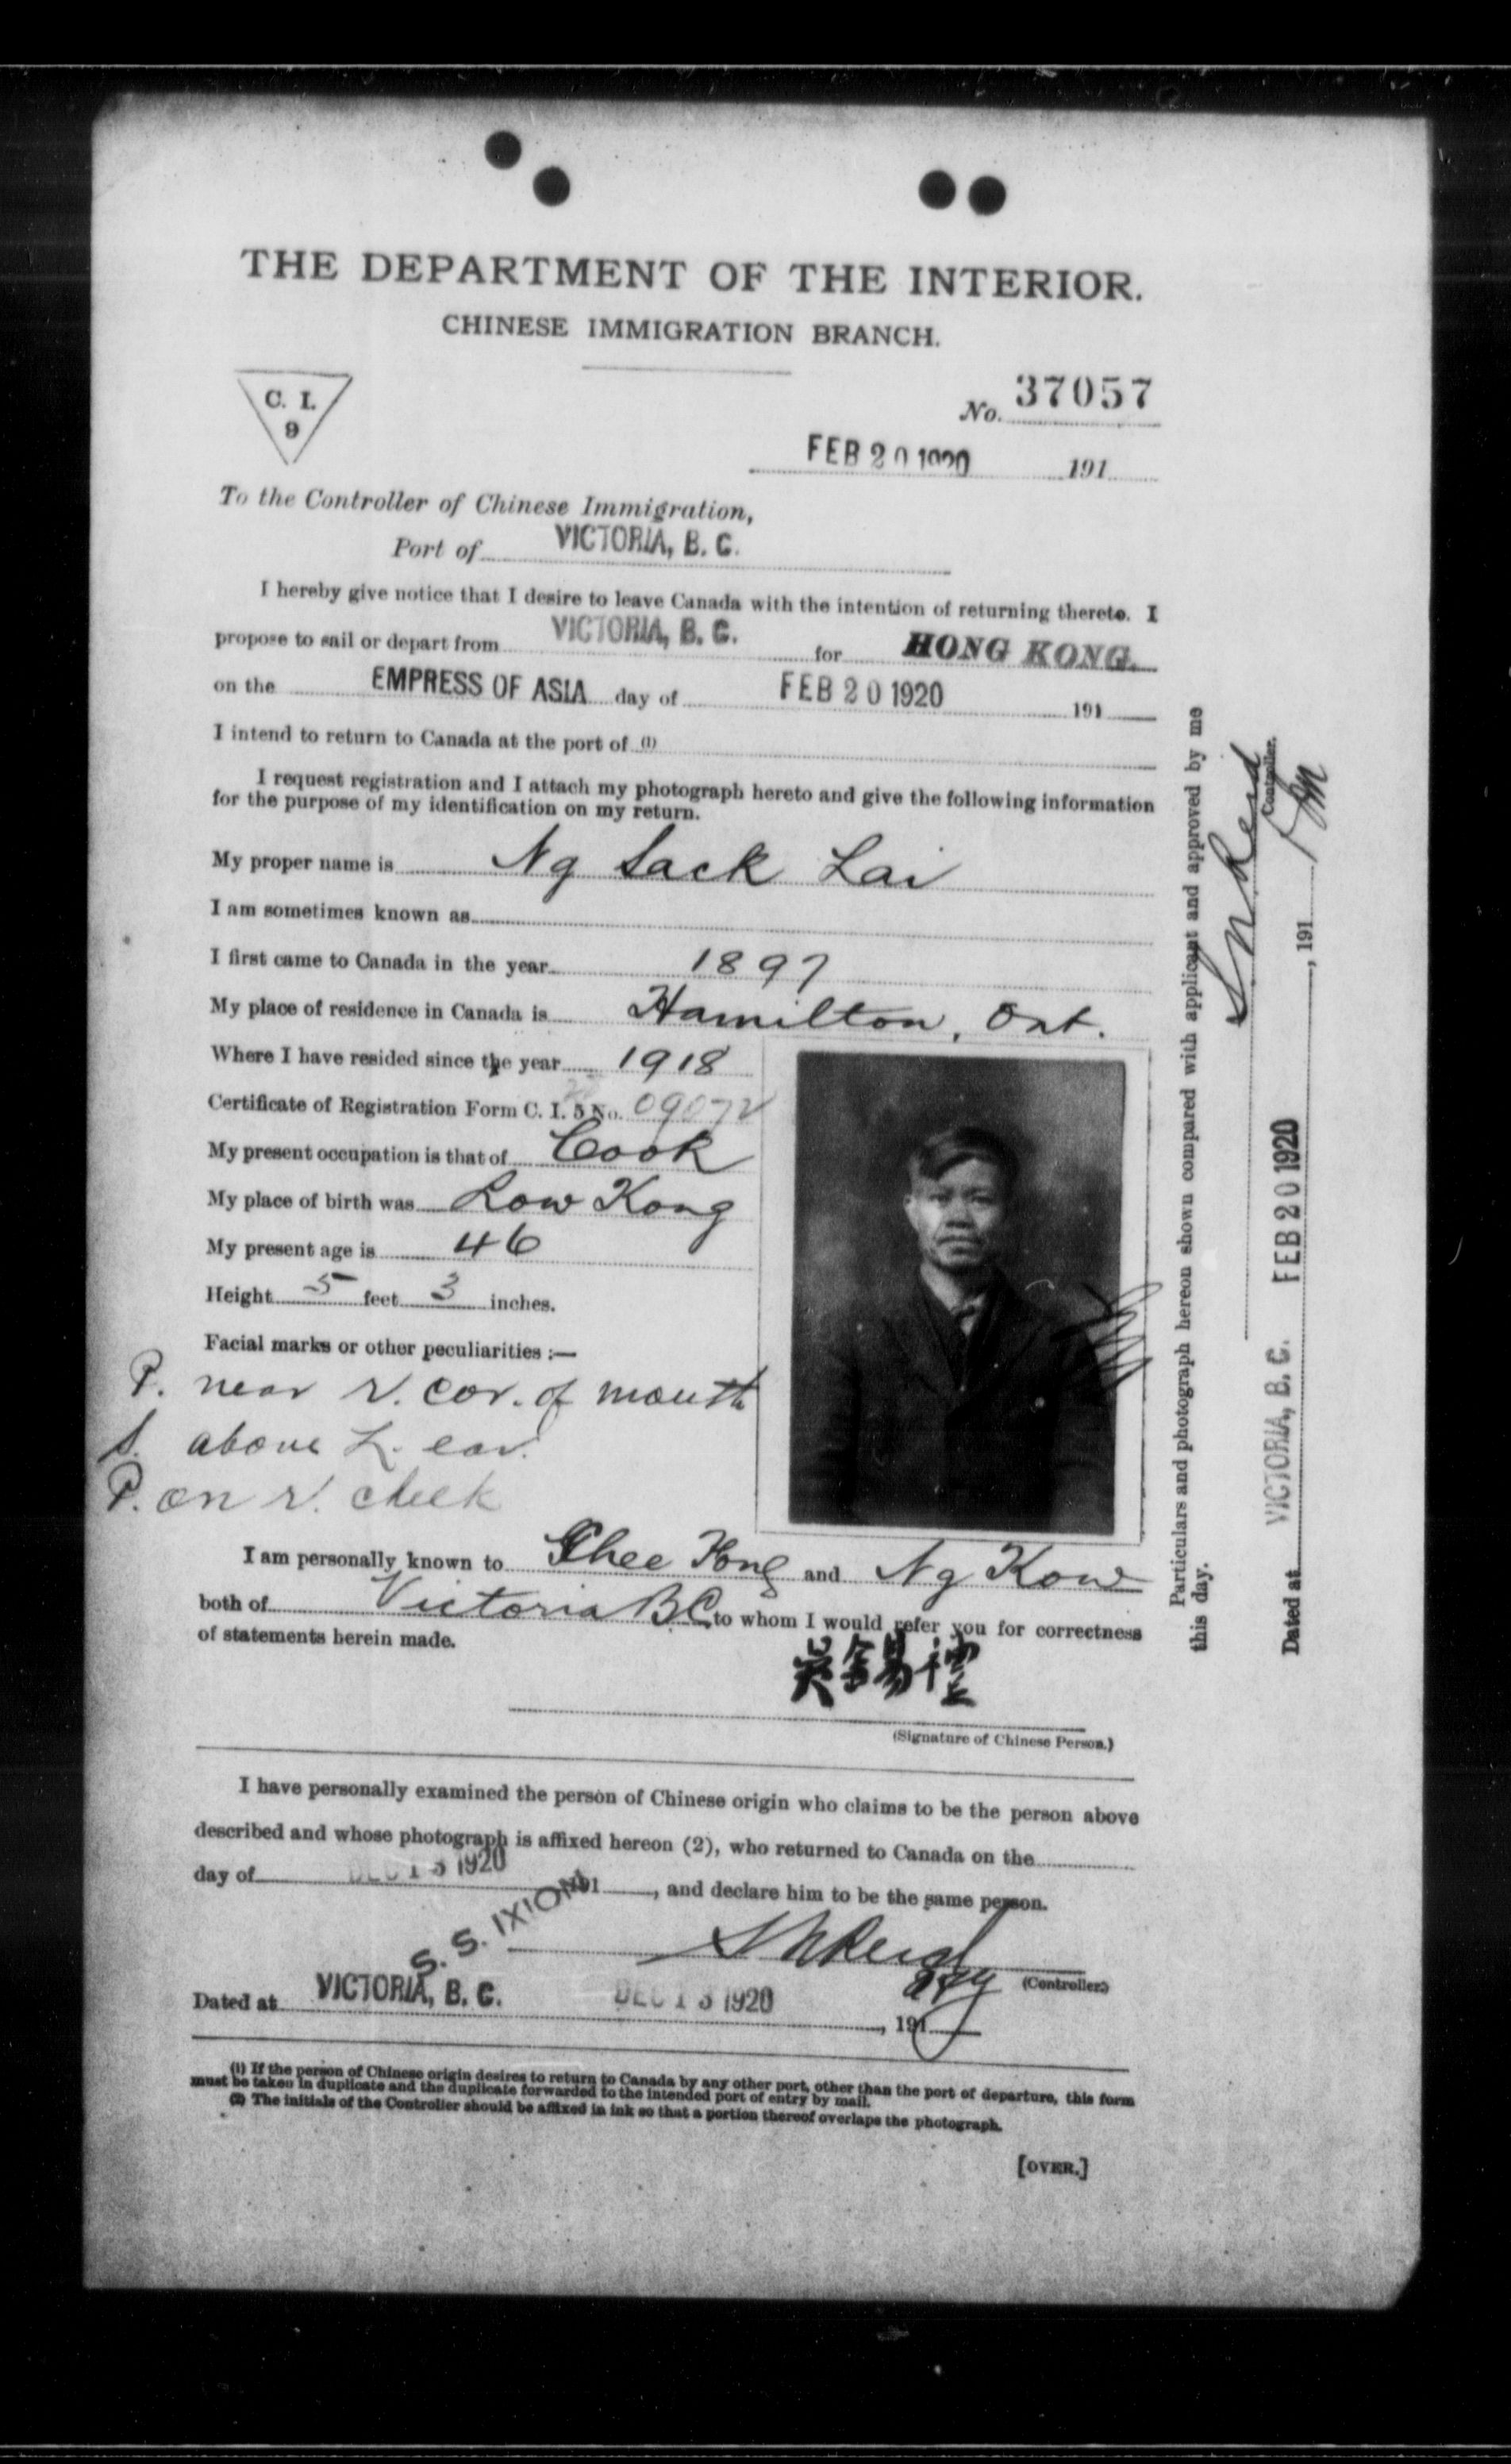 THE DEPARTMENT OF THE INTERIOR.
CHINESE IMMIGRATION BRANCH.
C. I.
9
No. 37057
FEB 20 1920 191
To the Controller of Chinese Immigration,
Port of VICTORIA, B. C.
I hereby give notice that I desire to leave Canada with the intention of returning thereto. I
propose to sail or depart from VICTORIA, B. C. for HONG KONG.
on the EMPRESS OF ASIA day of FEB 20 1920 191
I intend to return to Canada at the port of (1)
I request registration and I attach my photograph hereto and give the following information
for the purpose of my identification on my return.
My proper name is Ng Sack Lai
I am sometimes known as
I first came to Canada in the year 1897
My place of residence in Canada is Hamilton, Ont.
Where I have resided since the year 1918
Certificate of Registration Form C. I. 5 No. 09072
My present occupation is that of Cook
My place of birth was Low Kong
My present age is 46
Height 5 feet 3 inches.
Facial marks or other peculiarities :—
P. near r. cor. of mouth
S. above L. ear.
P. on r. cheek
I am personally known to Ghee Hong and Ng Kow
both of Victoria B.C. to whom I would refer you for correctness
of statements herein made.
吳錫禮
(Signature of Chinese Person.)
I have personally examined the person of Chinese origin who claims to be the person above
described and whose photograph is affixed hereon (2), who returned to Canada on the
day of DEC 13 1920 191, and declare him to be the same person.
S. S. IXION
(Controller.)
Dated at VICTORIA, B. C. DEC 13 1920, 191
(1) If the person of Chinese origin desires to return to Canada by any other port, other than the port of departure, this form
must be taken in duplicate and the duplicate forwarded to the intended port of entry by mail.
(2) The initials of the Controller should be affixed in ink so that a portion thereof overlaps the photograph.
[OVER.]
Particulars and photograph hereon shown compared with applicant and approved by me
this day.
Controller.
Dated at VICTORIA, B. C. FEB 20 1920, 191